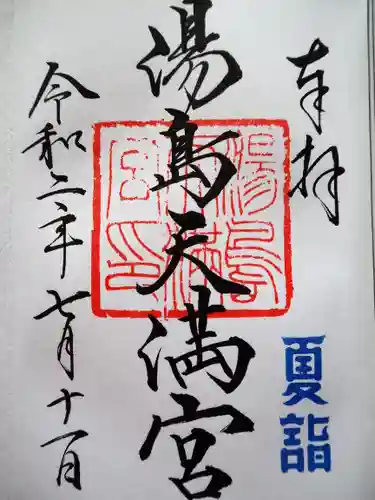 奉拝
夏詣
湯島天満宮
令和二年七月十一日